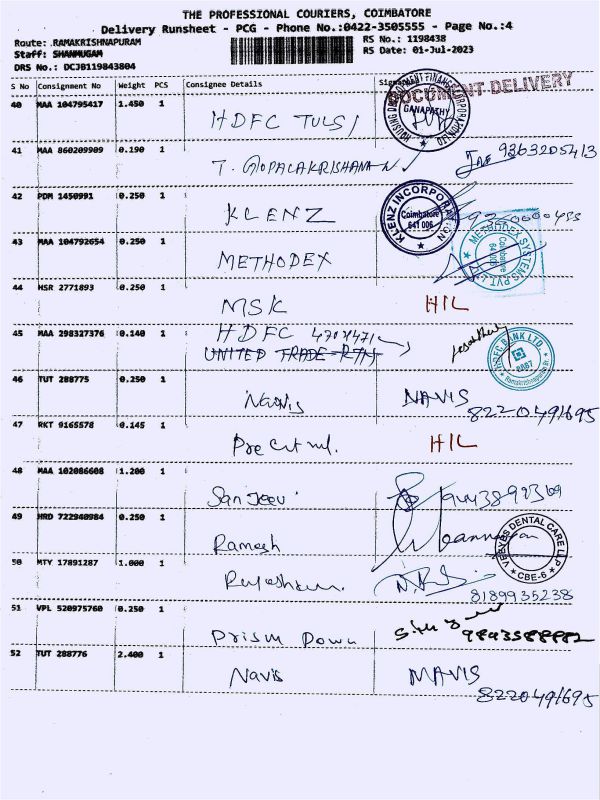 THE PROFESSIONAL COURIERS, COIMBATORE
Delivery Runsheet - PCG - Phone No.:0422-3505555 - Page No.:4
Route: .RAMAKRISHNAPURAM
RS No.: 1198438
Staff: SHANMUGAM
RS Date: 01-Jul-2023
DRS No.: DCJB119843804
S No Consignment No Weight PCS Consignee Details Signature
DOCUMENT DELIVERY
40 MAA 104795417 1.450 1 HDFC TULSI
GANAPATHY
41 MAA 860209909 0.190 1 T. GOPALAKRISHANAN 9363205413
42 PDM 1450991 0.250 1 KLENZ
KLENZ INCORPORATION
Coimbatore
641 006
43 MAA 104792654 0.250 1 METHODEX
METHODEX SYSTEMS PVT. L
Coimbatore
44 MSR 2771893 0.250 1 MSK HIL
45 MAA 298327376 0.140 1 HDFC
UNITED TRADE
HDFC BANK LTD.
Ramakrishnapuram Br.
46 TUT 288775 0.250 1 Navis NAVIS
8220491695
47 RKT 9165578 0.145 1 HIL
48 MAA 102086608 1.200 1 Sanjeev
49 HRD 722940984 0.250 1 Ramesh
VEEYES DENTAL CARE LLP
CBE-6
50 MTY 17891287 1.000 1
8189935238
51 VPL 520975760 0.250 1 Prism Down
9843588882
52 TUT 288776 2.400 1 Navis NAVIS
8220491695